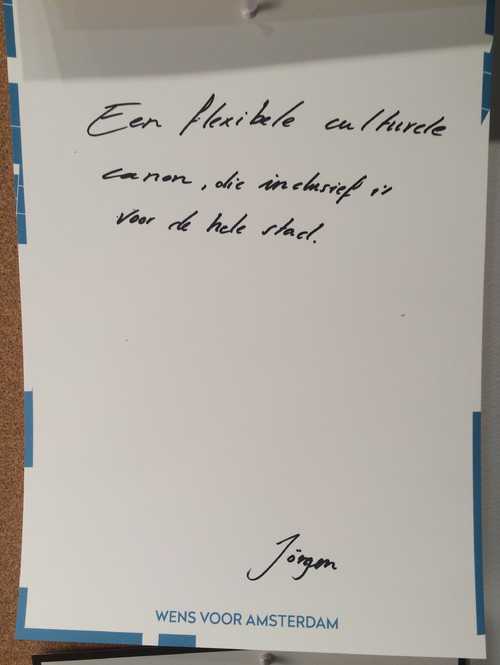 Een flexibele culturele
canon, die inclusief is
voor de hele stad.
Jörgen
WENS VOOR AMSTERDAM